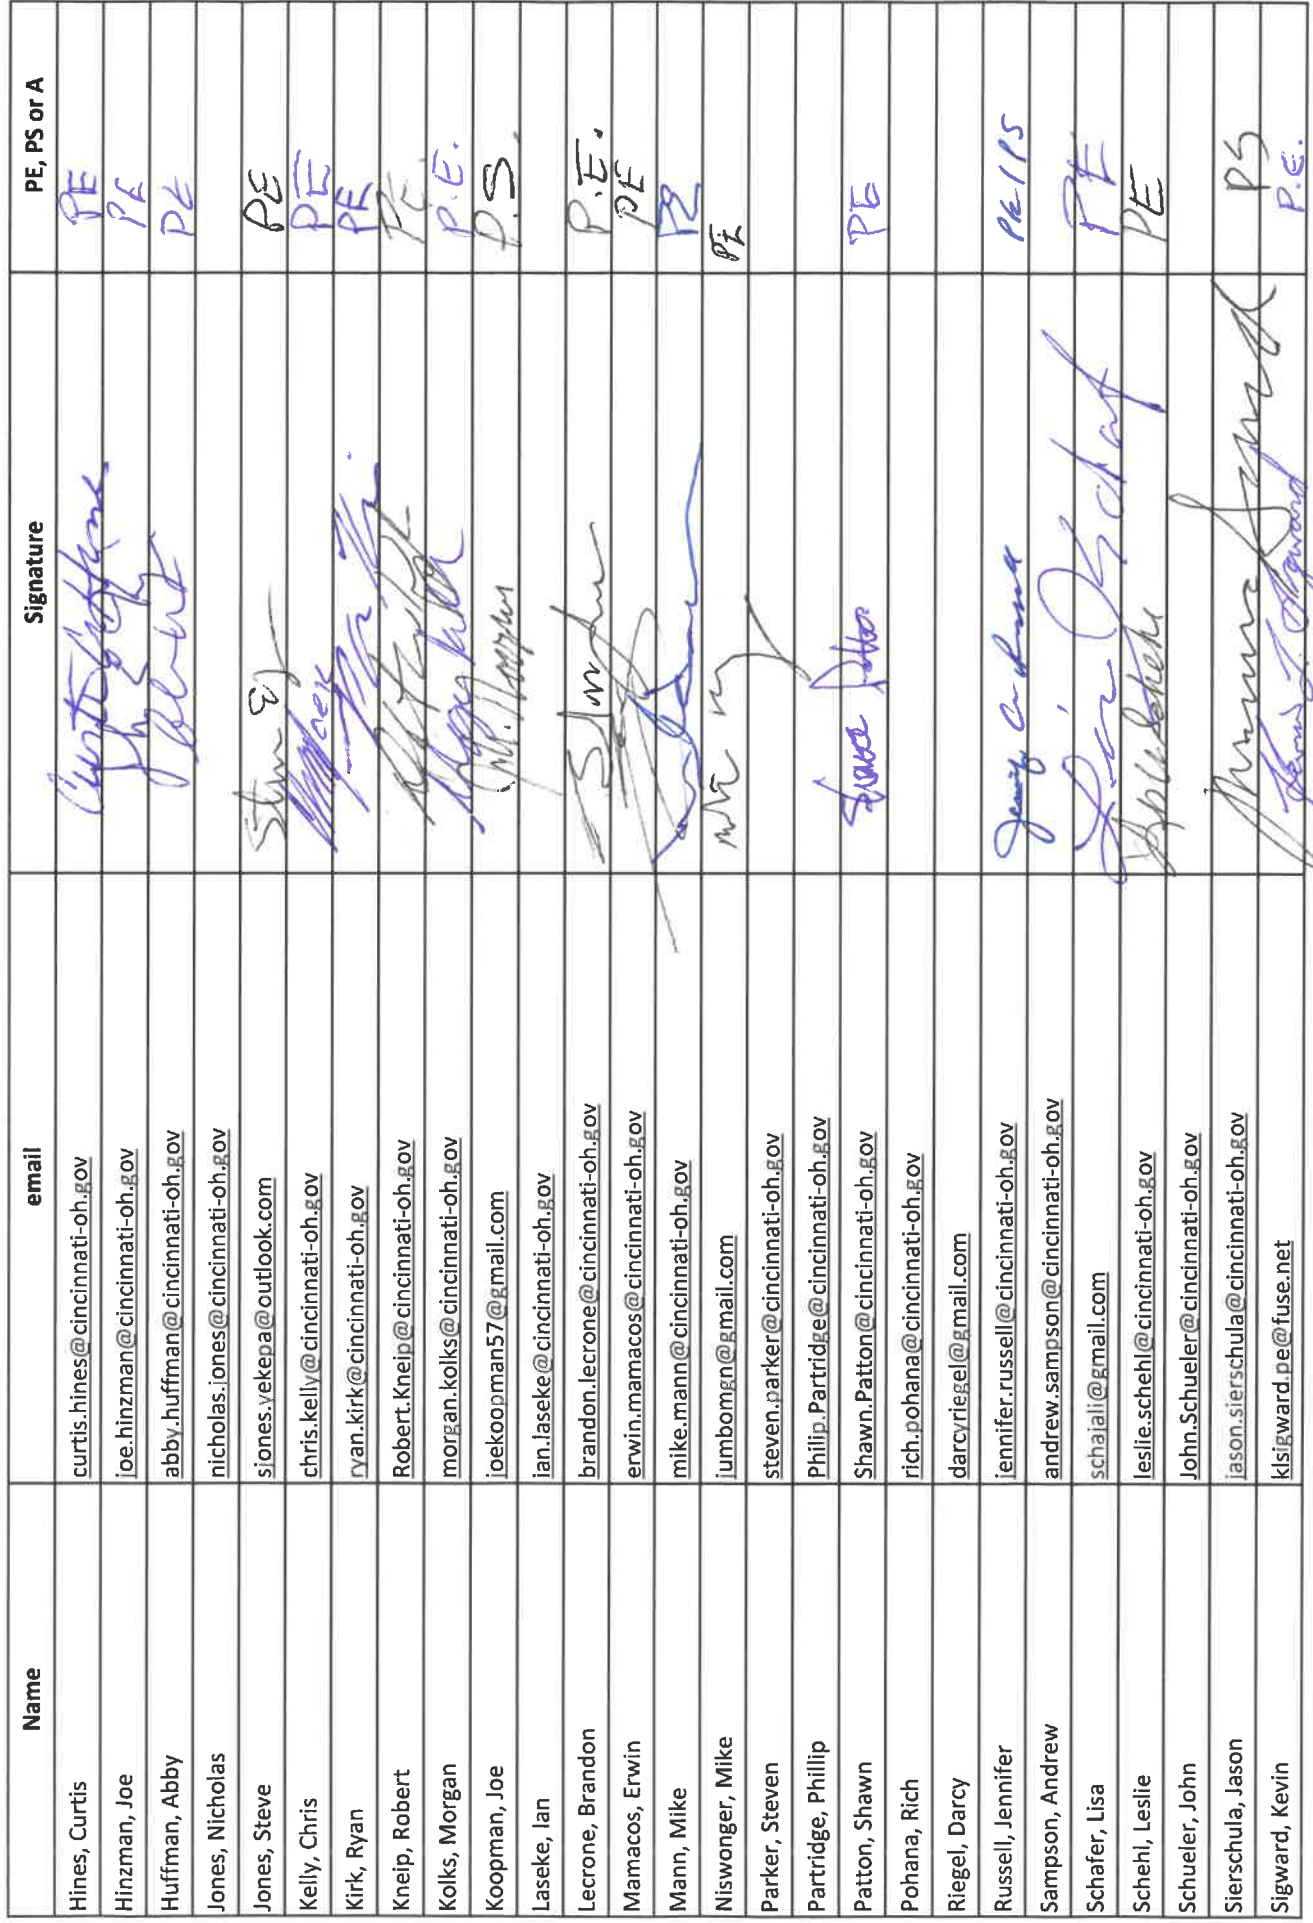 Name email Signature PE, PS or A
Hines, Curtis curtis.hines@cincinnati-oh.gov PE
Hinzman, Joe joe.hinzman@cincinnati-oh.gov PE
Huffman, Abby abby.huffman@cincinnati-oh.gov PE
Jones, Nicholas nicholas.jones@cincinnati-oh.gov
Jones, Steve sjones.yekepa@outlook.com PE
Kelly, Chris chris.kelly@cincinnati-oh.gov PE
Kirk, Ryan ryan.kirk@cincinnati-oh.gov PE
Kneip, Robert Robert.Kneip@cincinnati-oh.gov P.E.
Kolks, Morgan morgan.kolks@cincinnati-oh.gov P.E.
Koopman, Joe joekoopman57@gmail.com P.S.
Laseke, Ian ian.laseke@cincinnati-oh.gov
Lecrone, Brandon brandon.lecrone@cincinnati-oh.gov P.E.
Mamacos, Erwin erwin.mamacos@cincinnati-oh.gov PE
Mann, Mike mike.mann@cincinnati-oh.gov PE
Niswonger, Mike jumbomgn@gmail.com PE
Parker, Steven steven.parker@cincinnati-oh.gov
Partridge, Phillip Philip.Partridge@cincinnati-oh.gov
Patton, Shawn Shawn.Patton@cincinnati-oh.gov Shawn Patton PE
Pohana, Rich rich.pohana@cincinnati-oh.gov
Riegel, Darcy darcyriegel@gmail.com
Russell, Jennifer jennifer.russell@cincinnati-oh.gov PE/PS
Sampson, Andrew andrew.sampson@cincinnati-oh.gov
Schafer, Lisa schajali@gmail.com PE
Schehl, Leslie leslie.schehl@cincinnati-oh.gov PE
Schueler, John John.Schueler@cincinnati-oh.gov
Sierschula, Jason jason.sierschula@cincinnati-oh.gov PS
Sigward, Kevin klsigward.pe@fuse.net P.E.